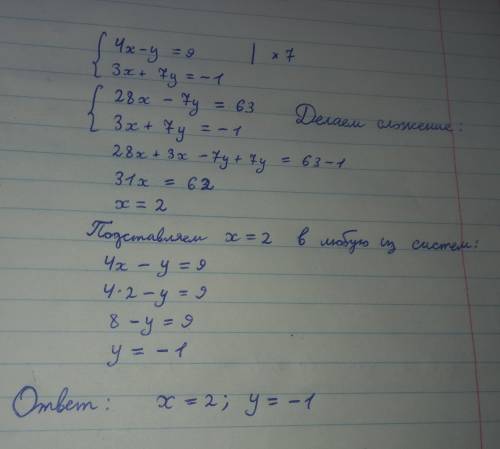 4x-y = 9 | × 7
3x + 7y = -1
28x - 7y = 63 Делаем сложение:
3x + 7y = -1
28x + 3x - 7y + 7y = 63-1
31x = 62
x = 2
Подставляем x = 2 в любую из систем:
4x - y = 9
4·2 - y = 9
8 - y = 9
y = -1
Ответ: x = 2; y = -1